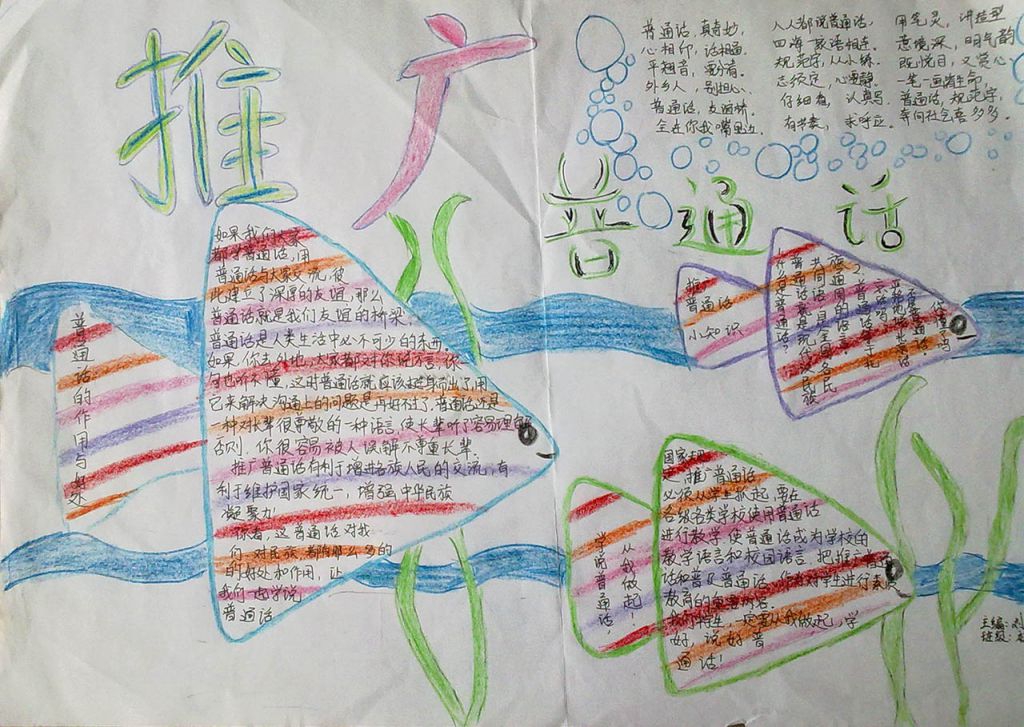 推广
普通话
普通话，真奇妙，
心相印，话相通。
平翘音，要分清。
外乡人，别担心、
普通话，友谊桥。
全在你我嘴里边。
人人都说普通话，
四海家语相连。
规范字，从小练。
仔细看，认真写.
用笔灵，讲造型
意境深，明气韵
既悦目，又赏心、
一笔一画有生命
普通话，规范字，
普通话的作用与好处
如果我们大家
都学普通话，用
普通话与大家交流，彼
此建立了深厚的友谊，那么
普通话就是我们友谊的桥梁，
普通话是人类生活中必不可少的东西
如果，你去外地，大家都对你说方言，你
可也听不懂，这时普通话就应该挺身而出了，用
它来解决沟通上的问题是再好不过了，普通话还是
一种对长辈很尊敬的一种语言，使长辈听了容易理解
否则，你很容易被人误解不尊重长辈。
推广普通话有利于增进各族人民的交流，有
利于维护国家统一，增强中华民族
凝聚力！
你看，这普通话对我
们，对民族都有那么多的
的好处和作用，让
我们一起学说
普通话
推广
普通话
小知识
学说普通话，
从我做起！
国家规
定，推广普通话
必须从学生抓起，要在
各级各类学校使用普通话
进行教学，使普通话成为学校的
教学语言和校园语言，把推广普通
话和普及普通话，作为对学生进行素质
教育的重要内容。
我们学生，一定要从我做起，学
好，说好普
通话！
主编：
班级：